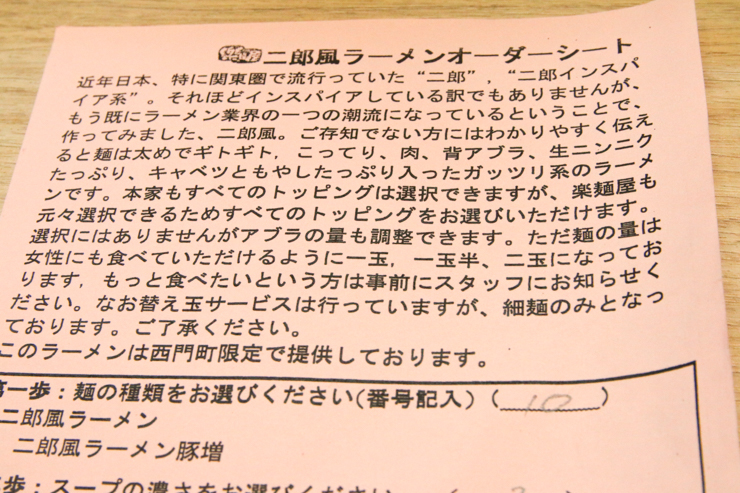 二郎風ラーメンオーダーシート
近年日本、特に関東圏で流行っていた“二郎”,“二郎インスパ
イア系”。それほどインスパイアしている訳でもありませんが、
もう既にラーメン業界の一つの潮流になっているということで、
作ってみました、二郎風。ご存知でない方にはわかりやすく伝え
ると麺は太めでギトギト,こってり、肉、背アブラ、生ニンニク
たっぷり、キャベツともやしたっぷり入ったガッツリ系のラーメ
ンです。本家もすべてのトッピングは選択できますが、楽麺屋も
元々選択できるためすべてのトッピングをお選びいただけます。
選択にはありませんがアブラの量も調整できます。ただ麺の量は
女性にも食べていただけるように一玉,一玉半、二玉になってお
ります,もっと食べたいという方は事前にスタッフにお知らせく
ださい。なお替え玉サービスは行っていますが、細麺のみとなっ
ております。ご了承ください。
このラーメンは西門町限定で提供しております。
第一歩：麺の種類をお選びください(番号記入)(10)
二郎風ラーメン
二郎風ラーメン豚増
歩：スープの濃さをお選びください